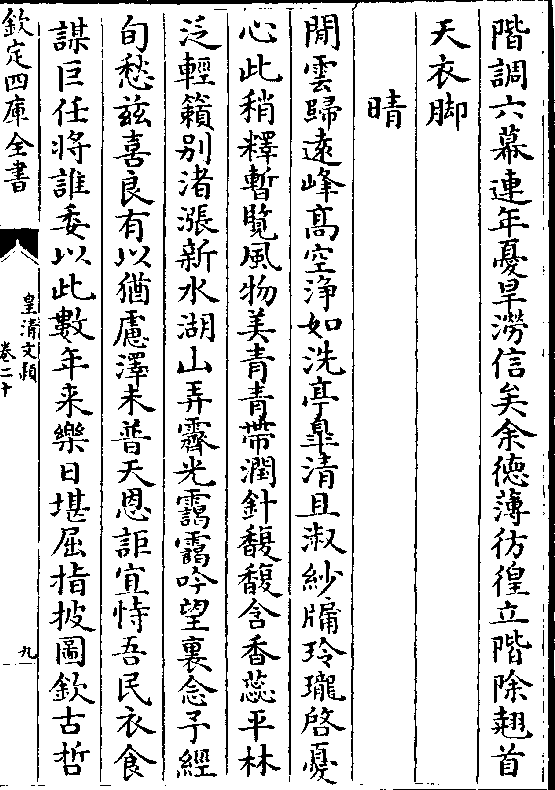 階調六幕連年憂旱澇信矣余德薄彷徨立階除翹首
天衣脚
晴
閒雲歸遠峰髙空浄如洗亭臯清且淑紗牖玲瓏啓憂
心此稍釋暫覽風物美青青帶潤針馥馥含香蕊平林
泛輕籟别渚漲新水湖山弄霽光靄靄吟望裏念予經
旬愁兹喜良有以猶慮澤未普天恩詎宜恃吾民衣食
謀巨任将誰委以此數年来樂日堪屈指披圖欽古哲
欽定四庫全書
皇清文穎
卷二十
九